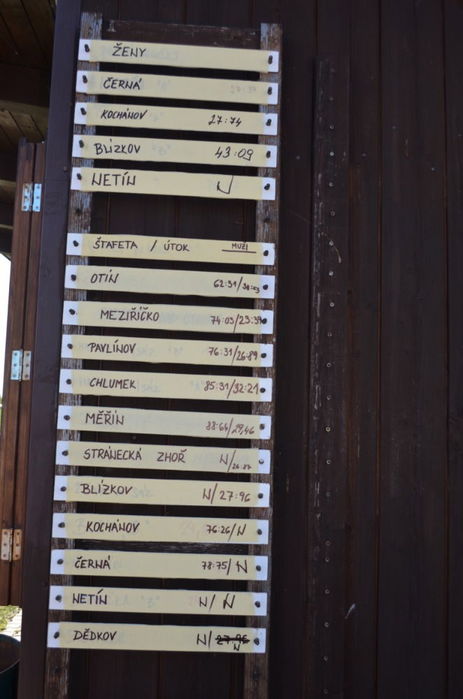 ŽENY
ČERNÁ
KOCHÁNOV 27:74
BLÍZKOV 43:09
NETÍN N
ŠTAFETA / ÚTOK MUŽI
OTÍN 62:31/
MEZIŘÍČKO 74:03/23:39
PAVLÍNOV 76:31/26:89
CHLUMEK 85:31/32:21
MĚŘÍN 88:64/29,46
STRÁNECKÁ ZHOŘ N/26:87
BLÍZKOV N/27:96
KOCHÁNOV 76:26/N
ČERNÁ 78:75/N
NETÍN N/N
DĚDKOV N/27:96 N